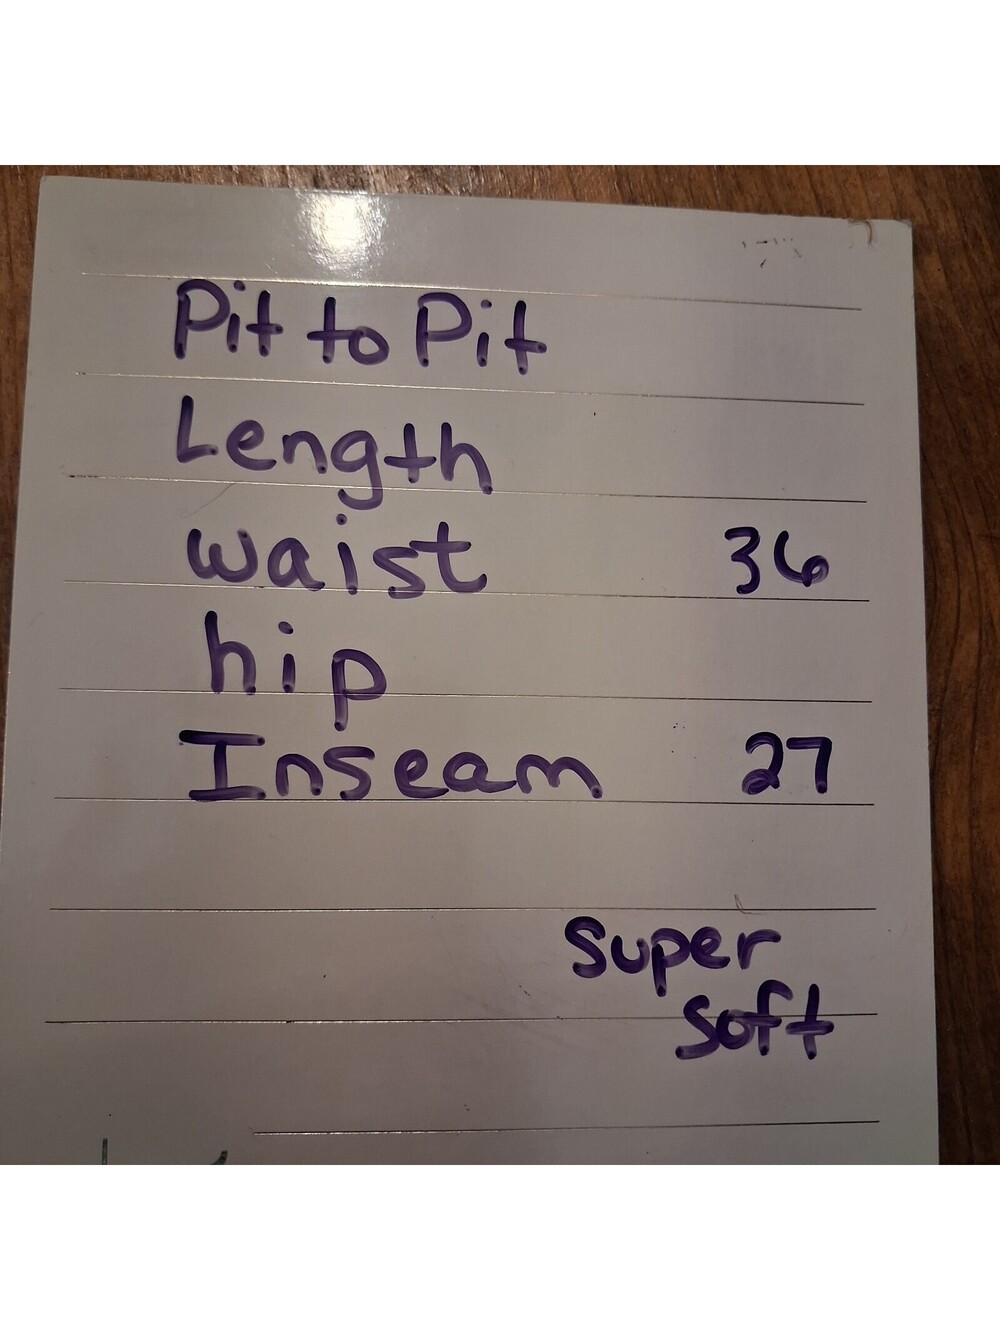 Pit to Pit
Length
waist 36
hip
Inseam 27
Super
Soft